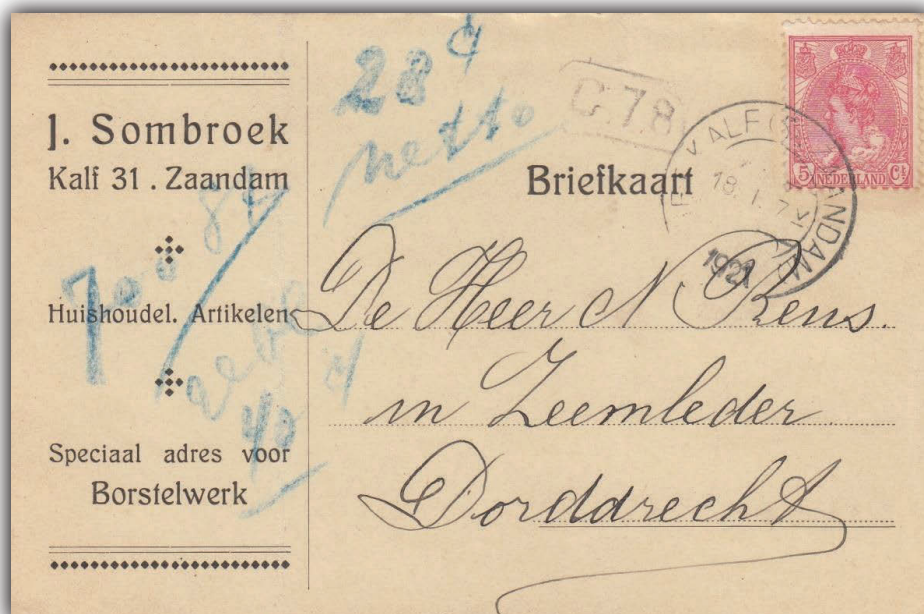 J. Sombroek
Kalf 31 . Zaandam
Huishoudel. Artikelen
Speciaal adres voor
Borstelwerk
28 ct
netto
40 ct
C.7.8
Briefkaart
18. 1. 7
1921
5 Ct
NEDERLAND
De Heer N Rens.
in Zeemleder
Dorddrecht